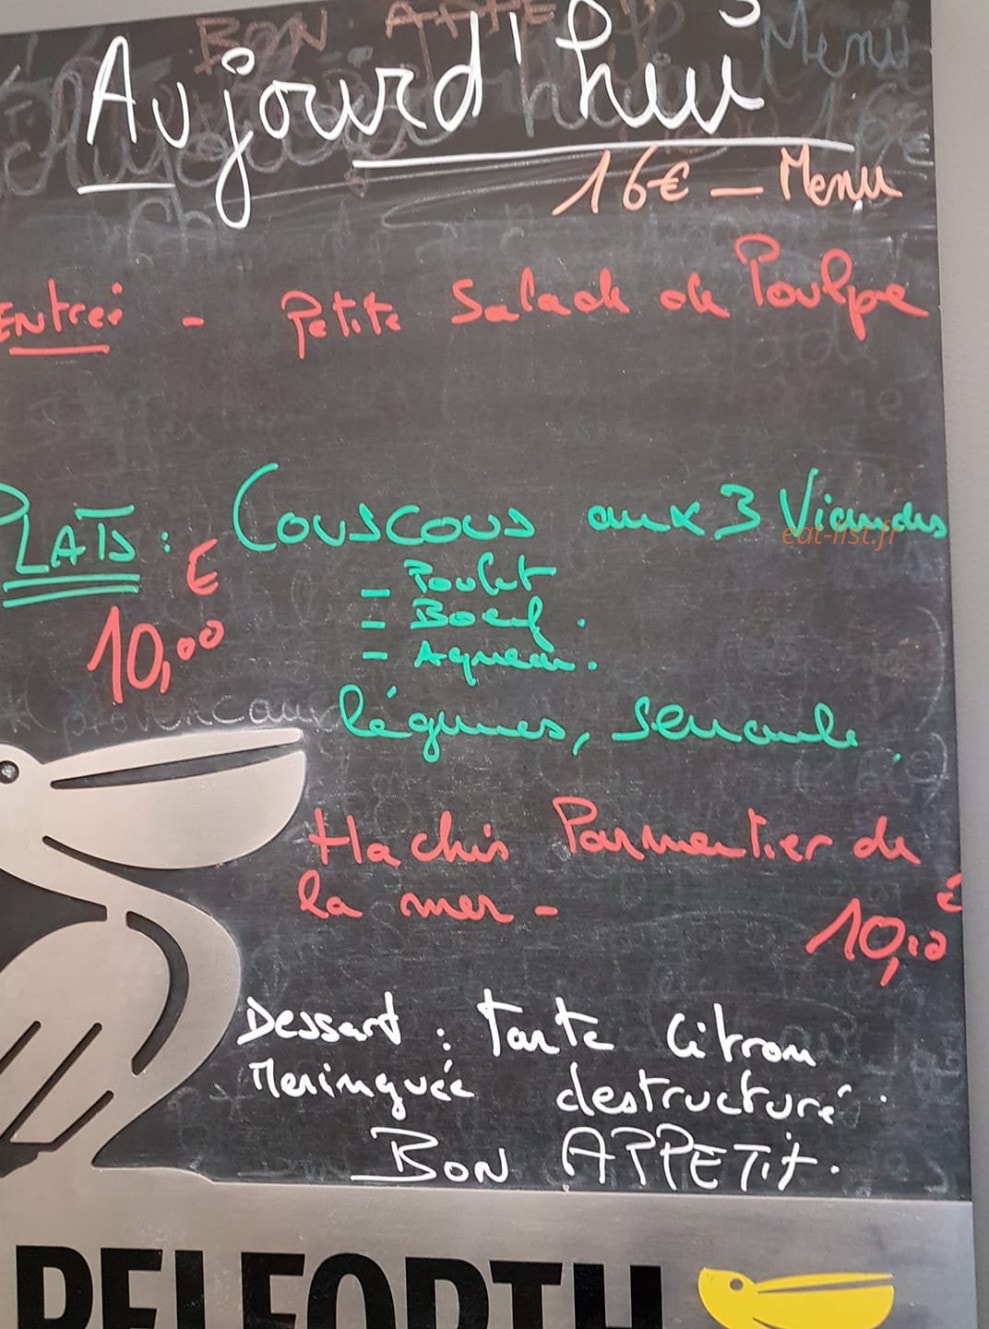 Aujourd'hui
16€ - Menu
Entrée - Petite Salade de Poulpe
PLATS : Couscous aux 3 Viandes
eat-list.fr
€
10,00
- Poulet
- Boeuf.
- Agneau.
légumes, semoule.
Hachis Parmentier de
la mer -
10,00 €
Dessert : Tarte Citron
Meringuée destructuré.
BON APPETIT.
PELFORTH